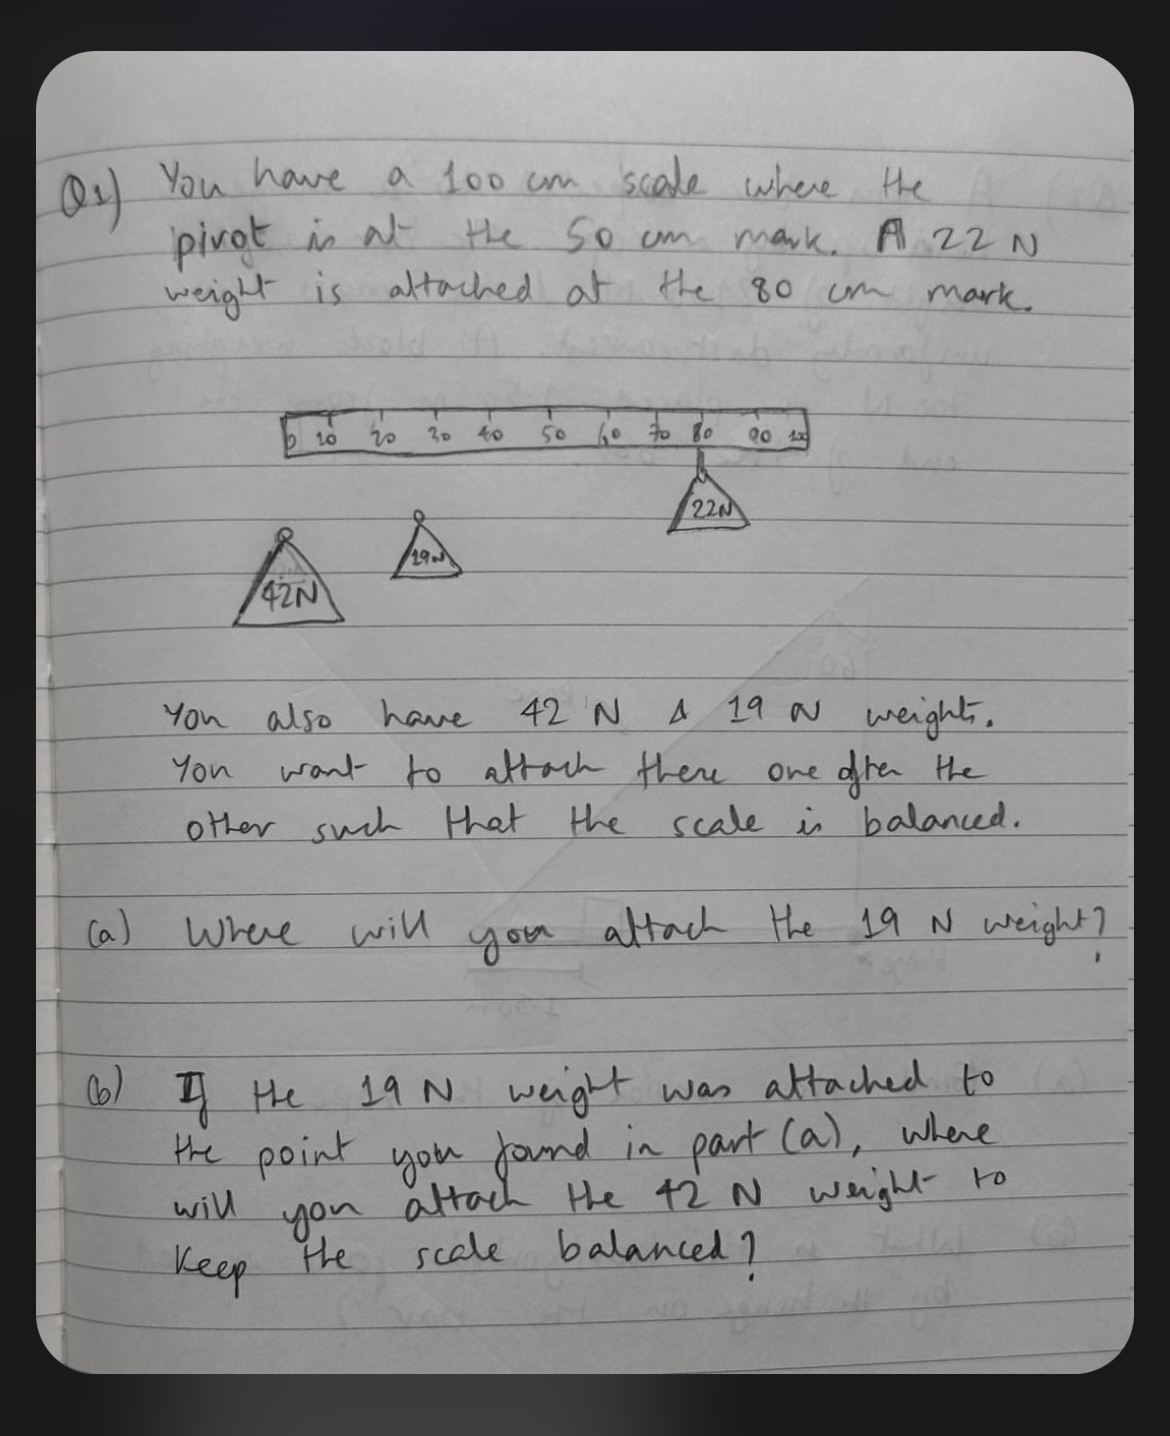 Q1) You have a 100 cm scale where the
pivot is at the 50 cm mark. A 22 N
weight is attached at the 80 cm mark.
0 10 20 30 40 50 60 70 80 90 100
22N
19N
42N
You also have 42 N & 19 N weights.
You want to attach there one after the
other such that the scale is balanced.
(a) Where will you attach the 19 N weight?
(b) If the 19 N weight was attached to
the point you found in part (a), where
will you attach the 42 N weight to
keep the scale balanced?